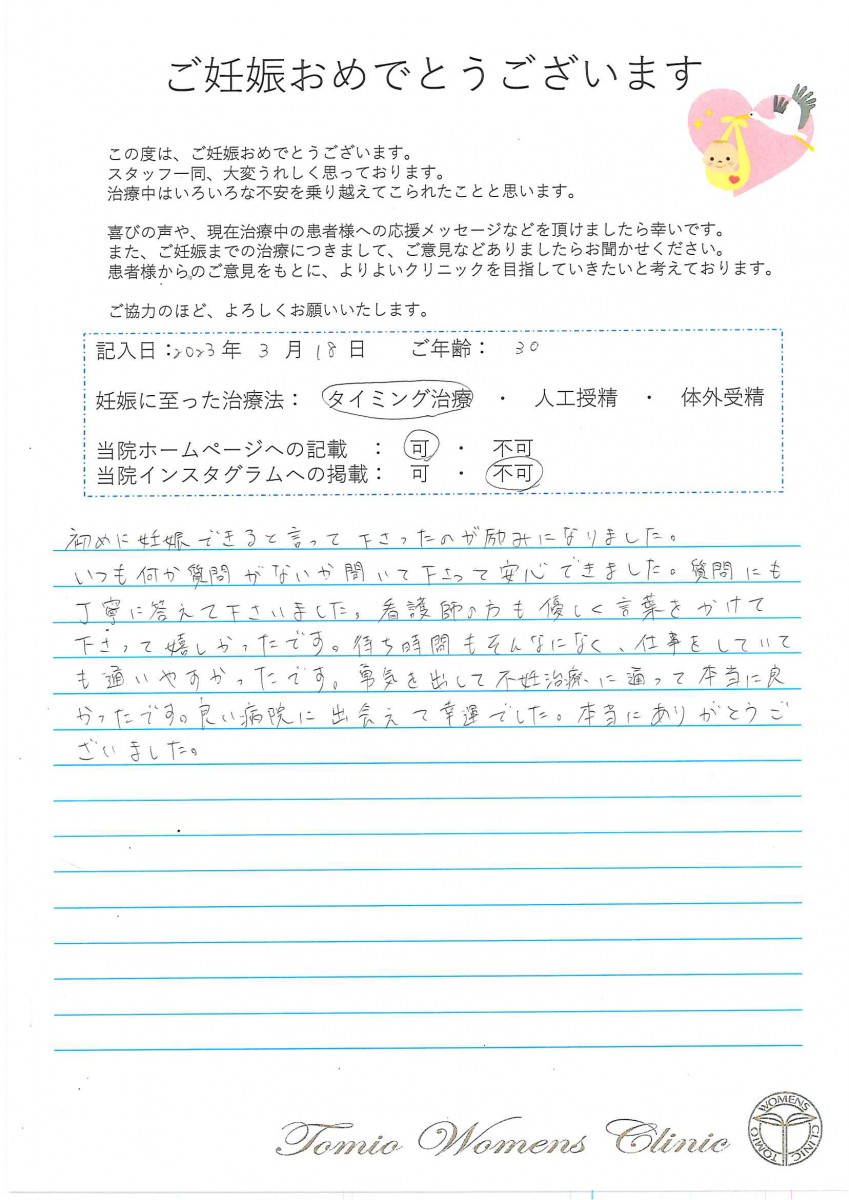 ご妊娠おめでとうございます
この度は、ご妊娠おめでとうございます。
スタッフ一同、大変うれしく思っております。
治療中はいろいろな不安を乗り越えてこられたことと思います。
喜びの声や、現在治療中の患者様への応援メッセージなどを頂けましたら幸いです。
また、ご妊娠までの治療につきまして、ご意見などありましたらお聞かせください。
患者様からのご意見をもとに、よりよいクリニックを目指していきたいと考えております。
ご協力のほど、よろしくお願いいたします。
記入日：2023年 3 月 18 日 ご年齢： 30
妊娠に至った治療法： タイミング治療 ・ 人工授精 ・ 体外受精
当院ホームページへの記載 ： 可 ・ 不可
当院インスタグラムへの掲載： 可 ・ 不可
初めに妊娠できると言って下さったのが励みになりました。
いつも何か質問がないか聞いて下さって安心できました。質問にも
丁寧に答えて下さいました。看護師の方も優しく言葉をかけて
下さって嬉しかったです。待ち時間もそんなになく、仕事をしていて
も通いやすかったです。勇気を出して不妊治療に通って本当に良
かったです。良い病院に出会えて幸運でした。本当にありがとうご
ざいました。
Tomio Womens Clinic
TOMIO WOMENS CLINIC